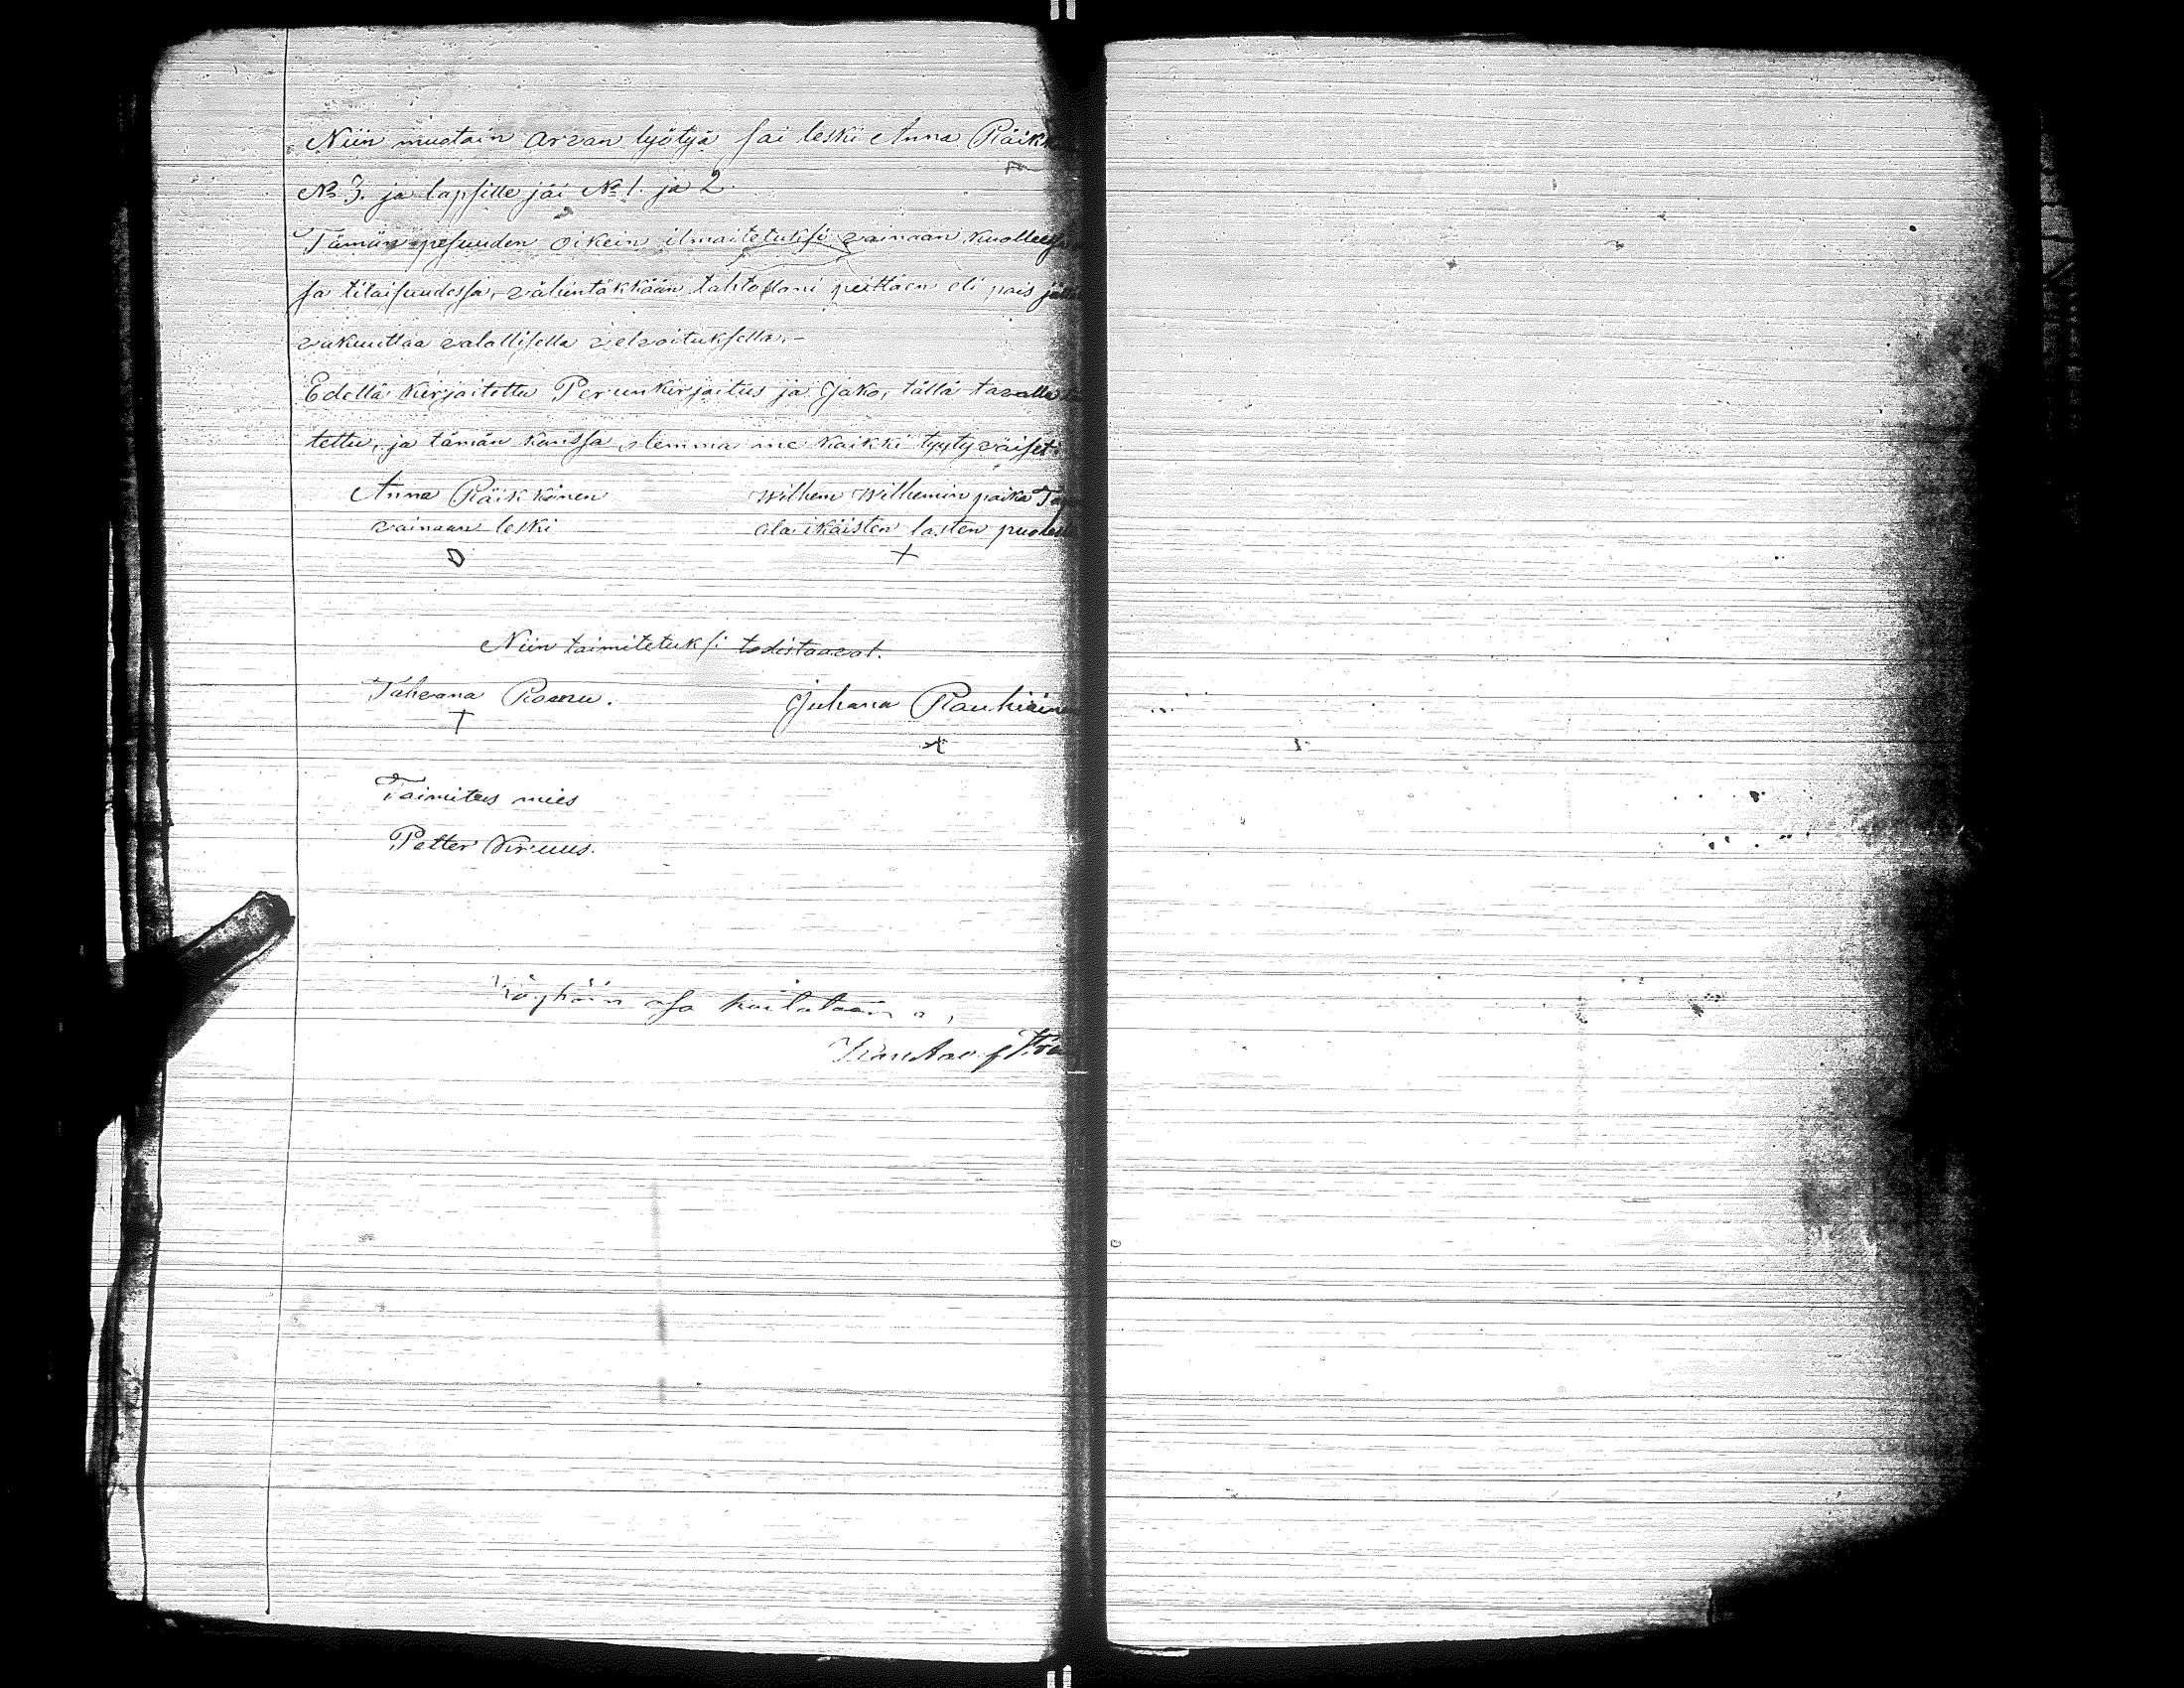 Niin muotoin arvan lyötyä sai leski Anna Räikkö
N:o 3. ja lapsille jäi N:o 1. ja 2.
Tämän pesuuden oikein ilmaitetuksi vainaan kuollessa
sa tilaisuudessa, vähintäkkään tahtostani peittäen eli pois jättä
vakuuttaa valallisella velvoituksella.-
Edellä kirjoitettu Perunkirjoitus ja Jako, tällä tavalla
tettu, ja tämän kanssa olemma me kaikki tyytyväiset.
Anna Räikkönen Wilhem Wilhemin poika
vainaan leski ala ikäisten lasten puolesta
Niin toimitetuksi todistaavat.
Tahvana Juhana Rauhiainen
Toimitus mies
Petter
kuitataan